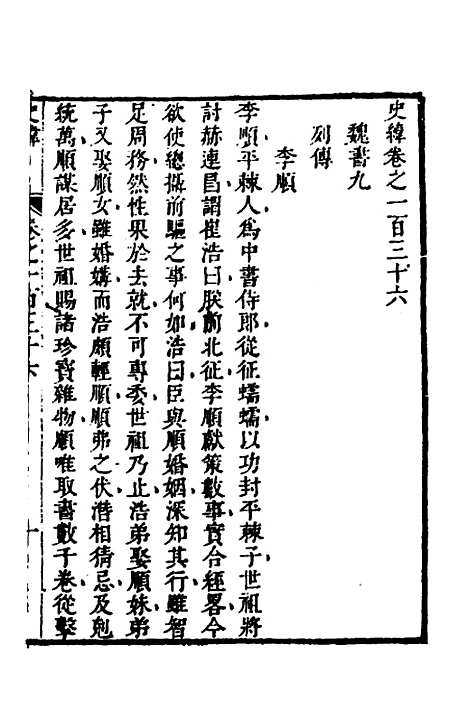 史緯卷之一百三十六
魏書九
列傳
李順
李順平棘人爲中書侍郎從征蠕蠕以功封平棘子世祖將
討赫連昌謂崔浩曰朕前北征李順獻策數事實合經畧今
欲使總攝前驅之事何如浩曰臣與順婚姻深知其行雖智
足周務然性果於去就不可專委世祖乃止浩弟娶順妹弟
子又娶順女雖婚媾而浩頗輕順順弗之伏潛相猜忌及剋
統萬順謀居多世祖賜諸珍寶雜物順唯取書數千卷從擊
史緯
卷之一百三十六